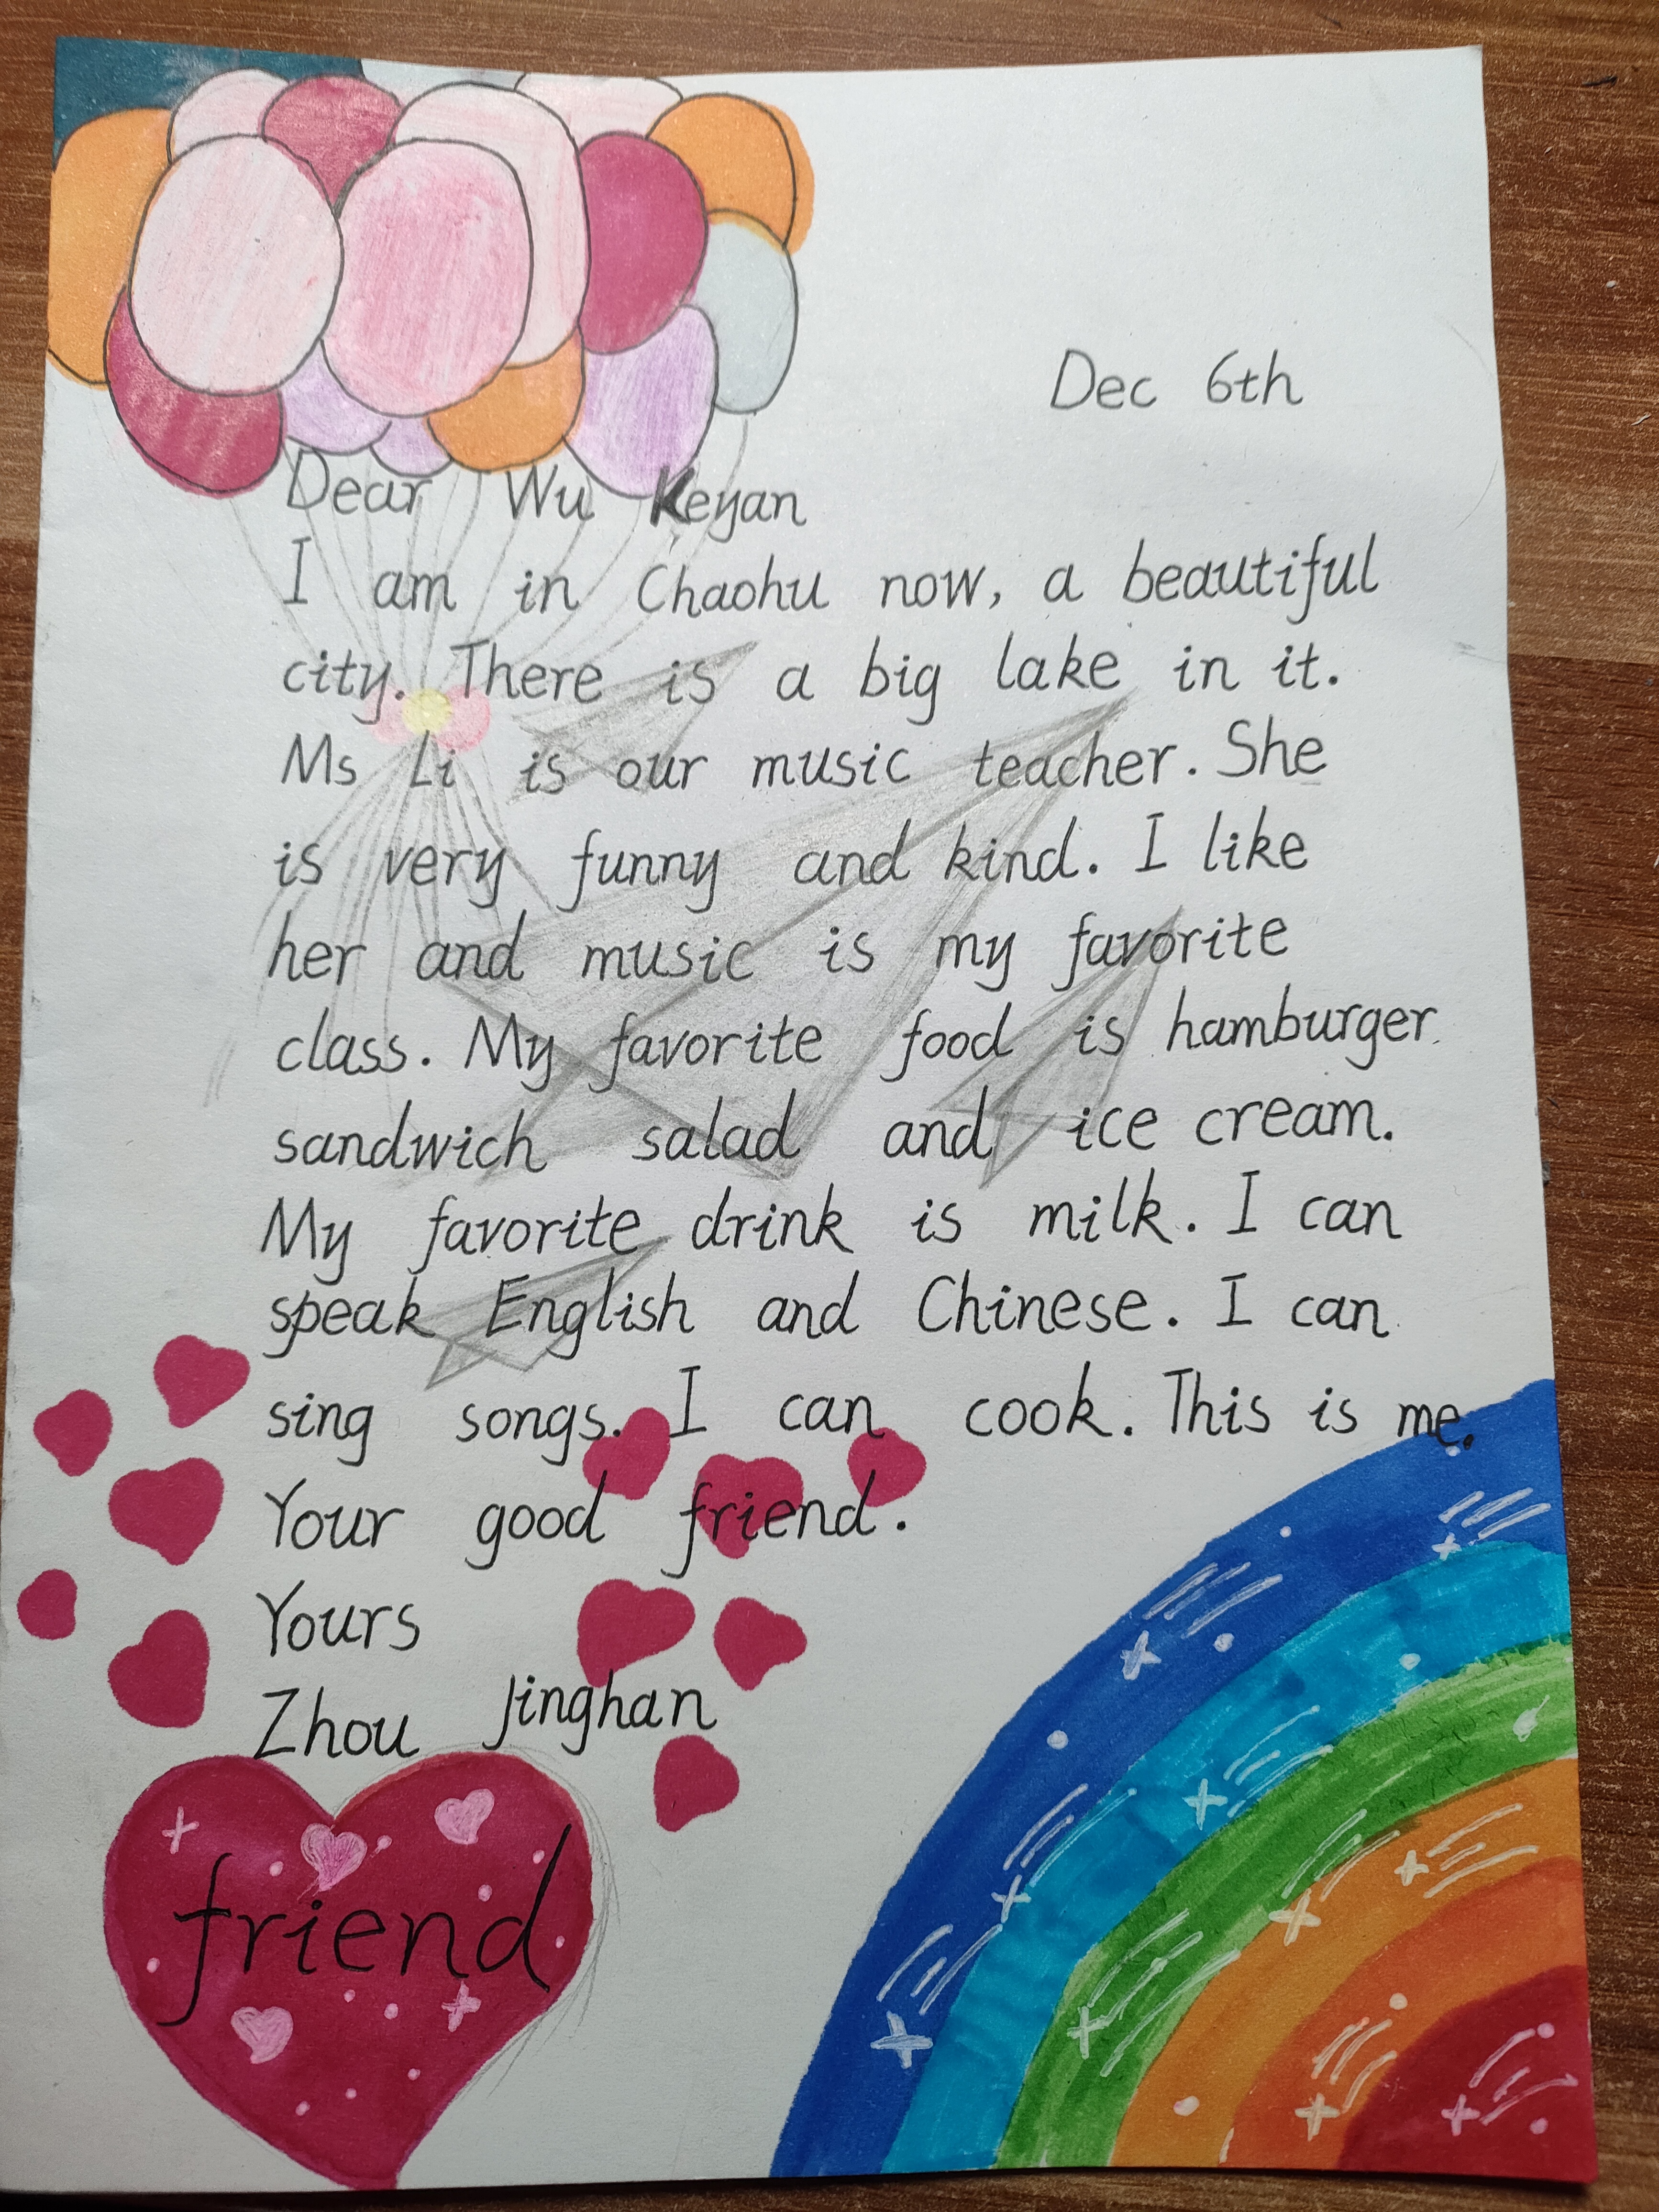 Dec 6th
Dear Wu Keyan
I am in Chaohu now, a beautiful
city. There is a big lake in it.
Ms Li is our music teacher. She
is very funny and kind. I like
her and music is my favorite
class. My favorite food is hamburger
sandwich salad and ice cream.
My favorite drink is milk. I can
speak English and Chinese. I can
sing songs. I can cook. This is me.
Your good friend.
Yours
Zhou Jinghan
friend